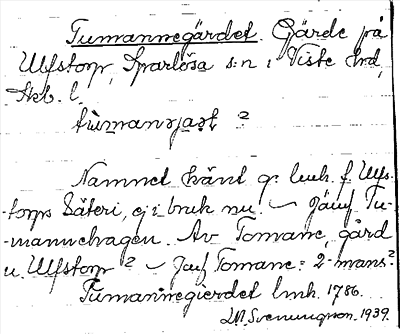 Tumannegärdet. Gärde på
Ulfstorp, Sparlösa s:n i Viste hd,
Skb. l.
tùmansjast ?
Namnet känt gm lmh. f. Ulfs-
-torps Säteri, ej i bruk nu. – Jämf Tu-
-mannehagen. Av Tomane, gård
u. Ulfstorp? – Jmf Tomane: 2-mans?
Tumannegierdet lmh. 1786.
Svenungson. 1939.